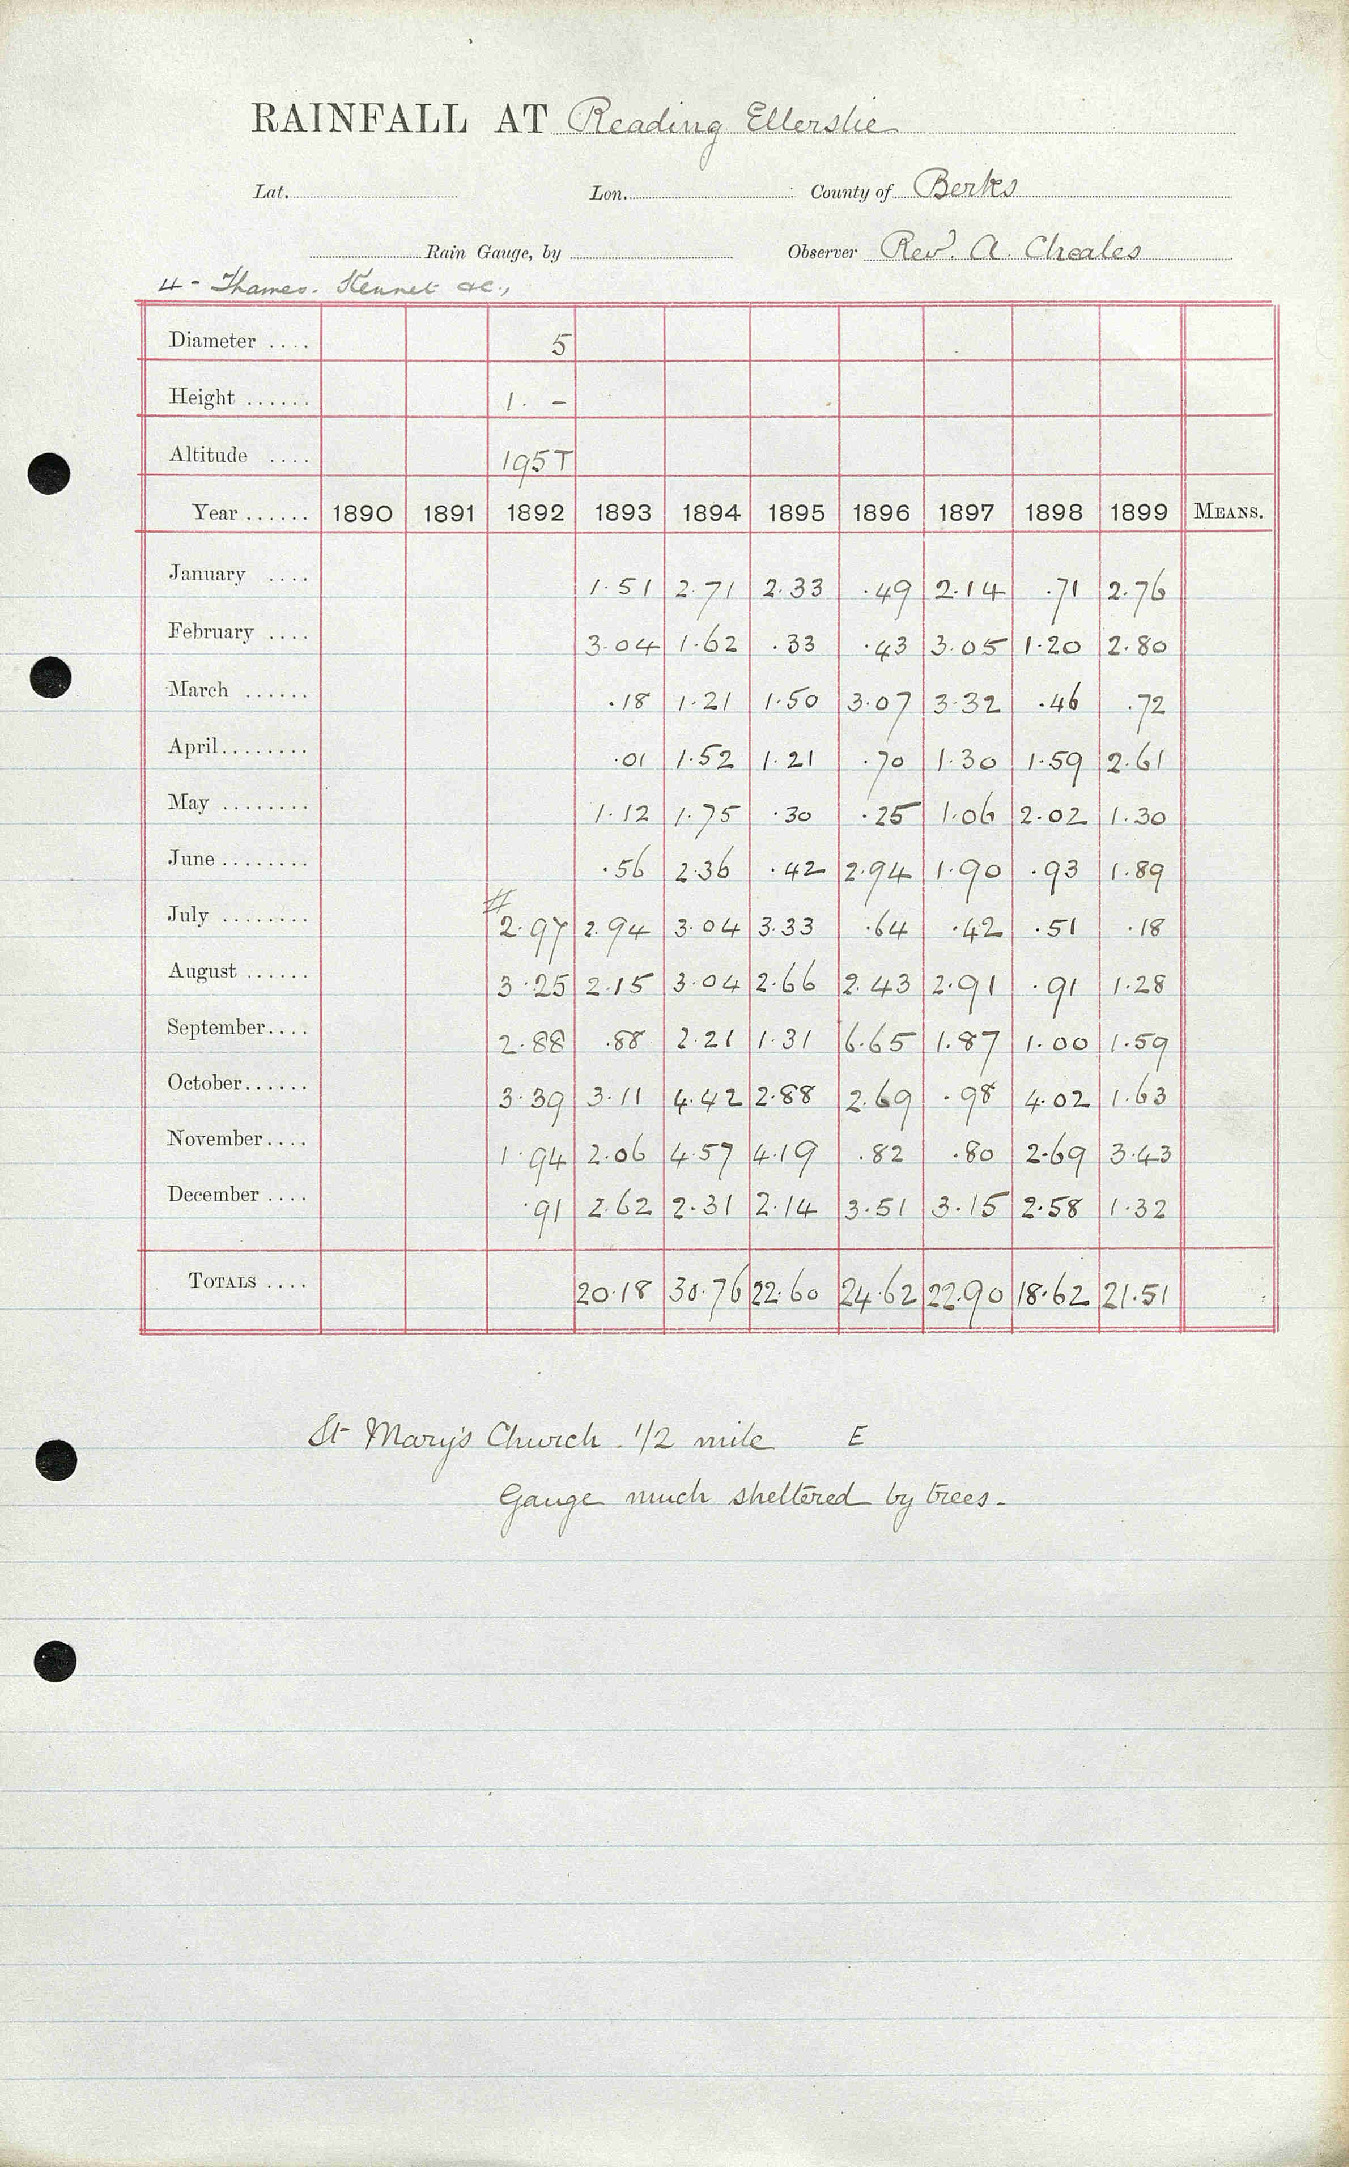 RAINFALL AT Reading Ellerslie
Lat. Lon. County of Berks
Rain Gauge, by Observer Rev. A. Cheales
4 - Thames. Kennet &c.,
Diameter .... 5
Height ...... 1. -
Altitude .... 195T
Year ...... 1890 1891 1892 1893 1894 1895 1896 1897 1898 1899 MEANS.
January .... 1.51 2.71 2.33 .49 2.14 .71 2.76
February .... 3.04 1.62 .33 .43 3.05 1.20 2.80
March ...... .18 1.21 1.50 3.07 3.32 .46 .72
April........ .01 1.52 1.21 .70 1.30 1.59 2.61
May ........ 1.12 1.75 .30 .25 1.06 2.02 1.30
June ........ .56 2.36 .42 2.94 1.90 .93 1.89
July ........ # 2.97 2.94 3.04 3.33 .64 .42 .51 .18
August ...... 3.25 2.15 3.04 2.66 2.43 2.91 .91 1.28
September.... 2.88 .88 2.21 1.31 6.65 1.87 1.00 1.59
October...... 3.39 3.11 4.42 2.88 2.69 .98 4.02 1.63
November.... 1.94 2.06 4.57 4.19 .82 .80 2.69 3.43
December .... .91 2.62 2.31 2.14 3.51 3.15 2.58 1.32
TOTALS .... 20.18 30.76 22.60 24.62 22.90 18.62 21.51
St Mary's Church. 1/2 mile E
Gauge much sheltered by trees.